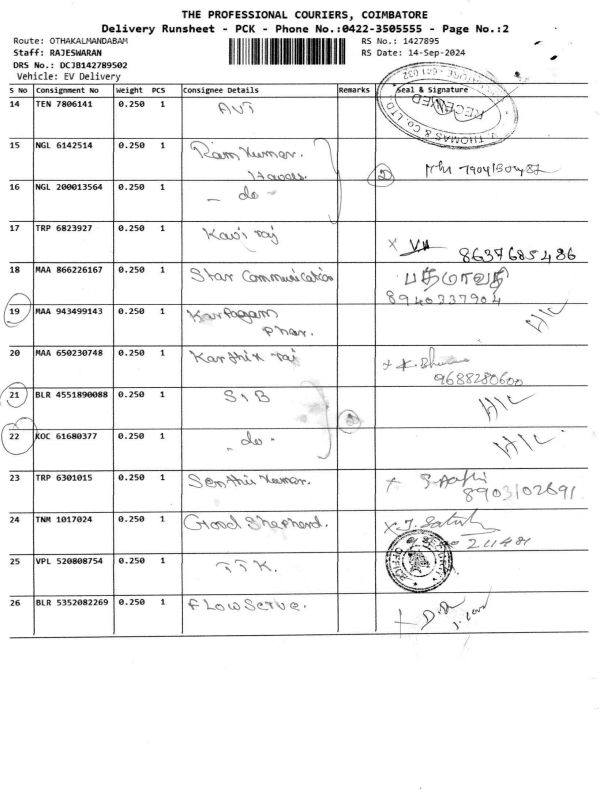 THE PROFESSIONAL COURIERS, COIMBATORE
Delivery Runsheet - PCK - Phone No.:0422-3505555 - Page No.:2
Route: OTHAKALMANDABAM RS No.: 1427895
Staff: RAJESWARAN RS Date: 14-Sep-2024
DRS No.: DCJB142789502
Vehicle: EV Delivery
S No Consignment No Weight PCS Consignee Details Remarks Seal & Signature
14 TEN 7806141 0.250 1 AVT
THOMAS & CO. LTD RECEIVED
15 NGL 6142514 0.250 1 Ram Kumar.
16 NGL 200013564 0.250 1 - do - 2
17 TRP 6823927 0.250 1 Kavi raj x 8637685486
18 MAA 866226167 0.250 1 Star Communication பத்மாவதி
8940337904
19 MAA 943499143 0.250 1 Karpagam
Phar. H/C
20 MAA 650230748 0.250 1 Karthik raj
9688280600
21 BLR 4551890088 0.250 1 SIB H/C
22 KOC 61680377 0.250 1 - do - H/C
23 TRP 6301015 0.250 1 Senthil Kumar.
8903102691
24 TNM 1017024 0.250 1 Good Shepherd. x J. Satish
25 VPL 520808754 0.250 1 TTK. SECURITY OFFICE
26 BLR 5352082269 0.250 1 Flowserve.